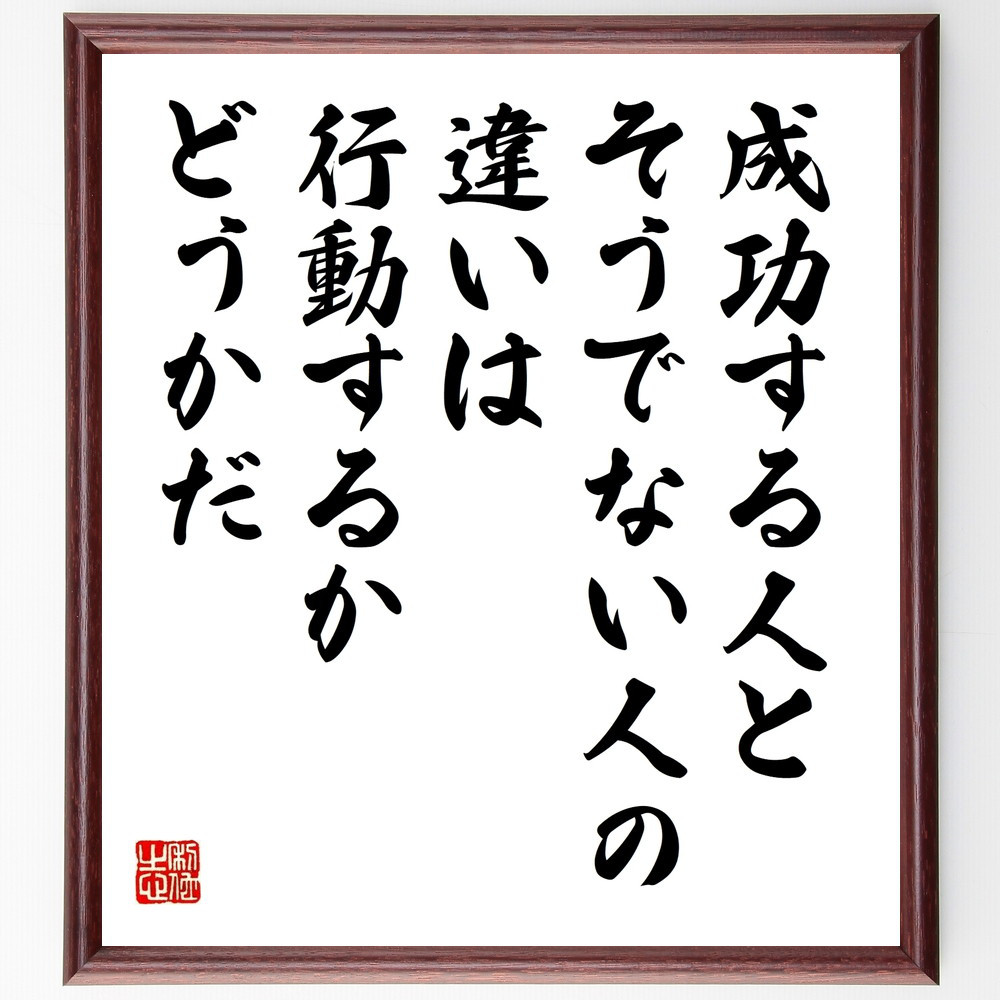 成功する人と
そうでない人の
違いは
行動するか
どうかだ